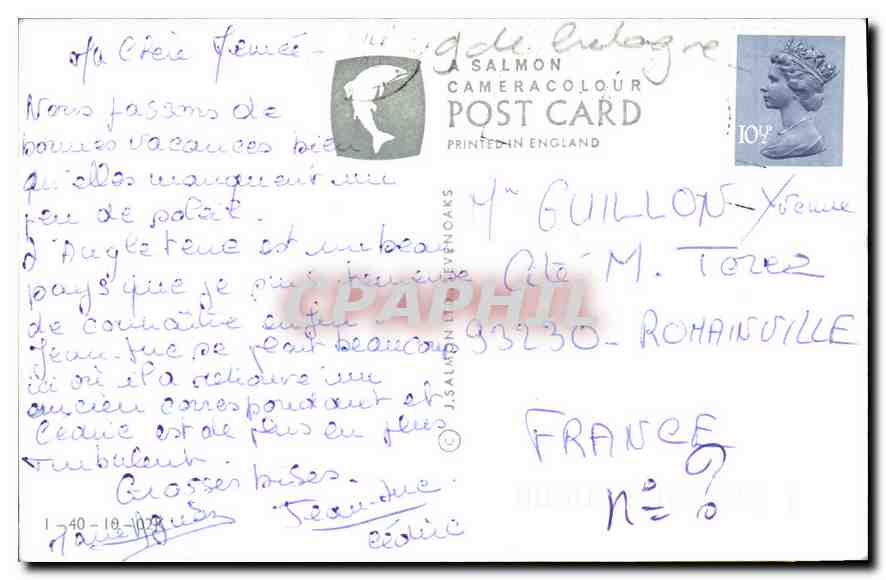 Ma Chère Mémée -
Nous passons de
bonnes vacances bien
qu'elles manquent un
peu de soleil.
L'Angleterre est un beau
pays que je suis heureuse
de connaître enfin.
Jean-Luc se plait beaucoup
ici où il a retrouvé un
ancien correspondant et
Cédric est de plus en plus
turbulent.
Grosses bises.
Jean-Luc
Cédric
1-40-10-10
gde bretagne
A SALMON
CAMERACOLOUR
POST CARD
PRINTED IN ENGLAND
10½P
© J. SALMON LTD SEVENOAKS
Mme GUILLON Yvonne
Cité M. Torez
93230 - ROMAINVILLE
FRANCE
n° = ?
CPAPHIL